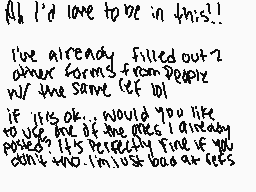 Ah I'd love to be in this!!
i've already filled out 2
other forms from people
w/ the same ref lol
if it's ok.. would you like
to use one of the ones I already
posted? It's perfectly fine if you
don't tho. I'm just bad at refs